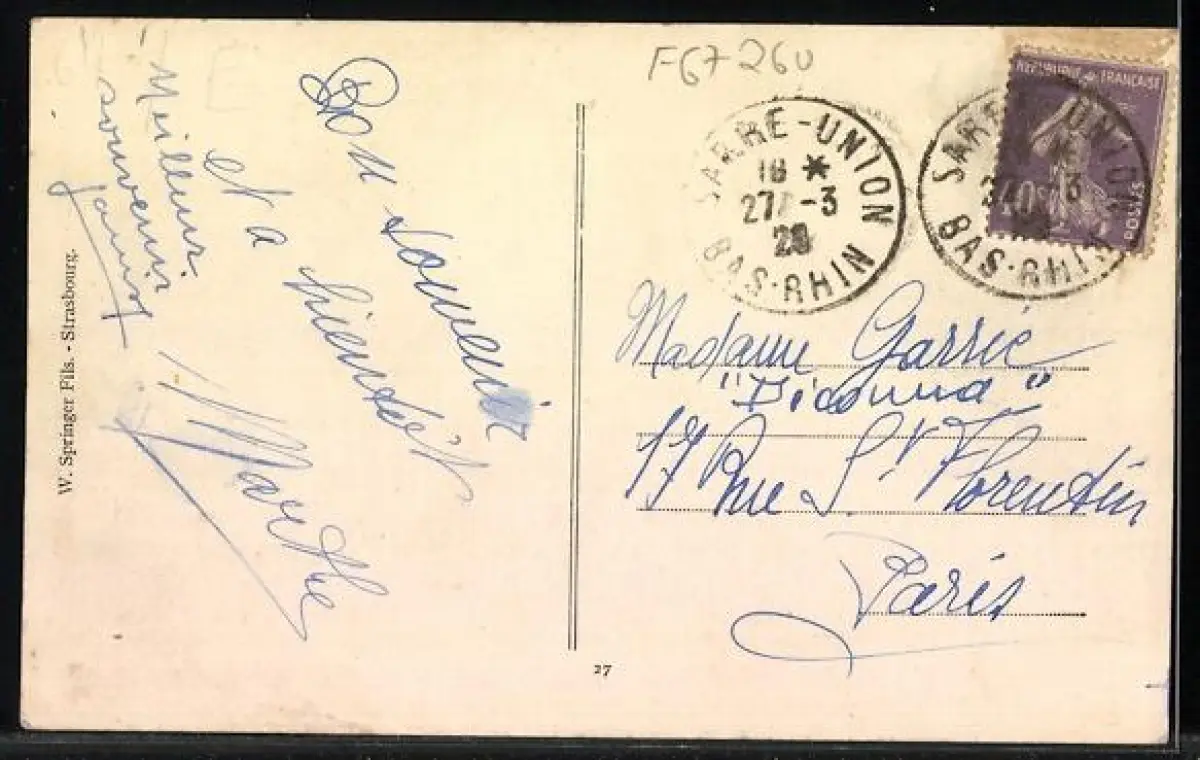 F67260
SARRE-UNION
18 *
27-3
28
BAS-RHIN
REPUBLIQUE FRANÇAISE
40c
POSTES
SARRE-UNION
3
BAS-RHIN
Bon souvenir
et a
bientôt
Marthe
Meilleurs
souvenirs
W. Springer Fils. - Strasbourg.
27
Madame Garrié
17 Rue St Florentin
Paris